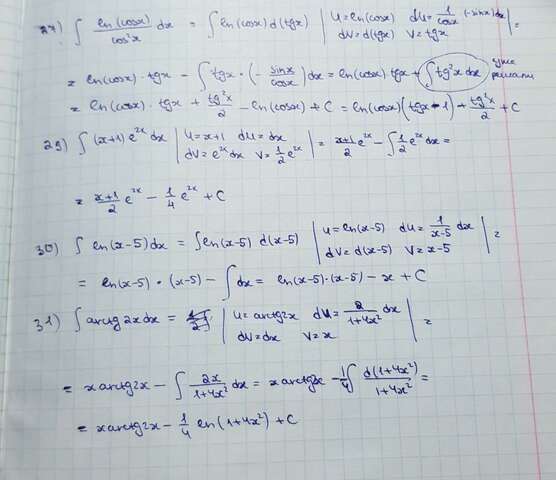 27) ∫ ln(cosx)/cos²x dx = ∫ ln(cosx) d(tgx) | u=ln(cosx) du= 1/cosx (-sinx)dx | =
dV=d(tgx) V=tgx
= ln(cosx)·tgx - ∫ tgx·(- sinx/cosx)dx = ln(cosx)·tgx + ∫ tg²x dx = уже решали
= ln(cosx)·tgx + tg²x/2 - ln(cosx) + C = ln(cosx)(tgx - 1) + tg²x/2 + C
29) ∫ (x+1)e^2x dx | u=x+1 du=dx
dV=e^2x dx V= 1/2 e^2x | = (x+1)/2 e^2x - ∫ 1/2 e^2x dx =
= (x+1)/2 e^2x - 1/4 e^2x + C
30) ∫ ln(x-5)dx = ∫ ln(x-5) d(x-5) | u=ln(x-5) du= 1/(x-5) dx
dV=d(x-5) V=x-5 | =
= ln(x-5)·(x-5) - ∫ dx = ln(x-5)·(x-5) - x + C
31) ∫ arctg2xdx = | u=arctg2x du= 2/(1+4x²) dx
dV=dx V=x | =
= x arctg2x - ∫ 2x/(1+4x²) dx = x arctg2x - 1/4 ∫ d(1+4x²)/(1+4x²) =
= x arctg2x - 1/4 ln(1+4x²) + C